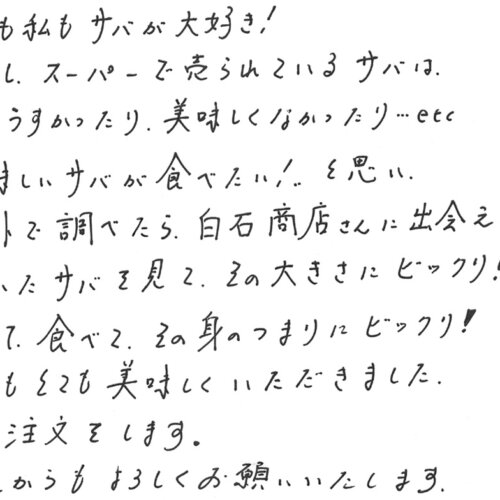 も私もサバが大好き!
し、スーパーで売られているサバは、
うすかったり、美味しくなかったり…etc
味しいサバが食べたい!、と思い、
トで調べたら、白石商店さんに出会え
いたサバを見て、その大きさにビックリ!
て、食べて、その身のつまりにビックリ!
もとても美味しくいただきました。
注文をします。
からもよろしくお願いいたします。